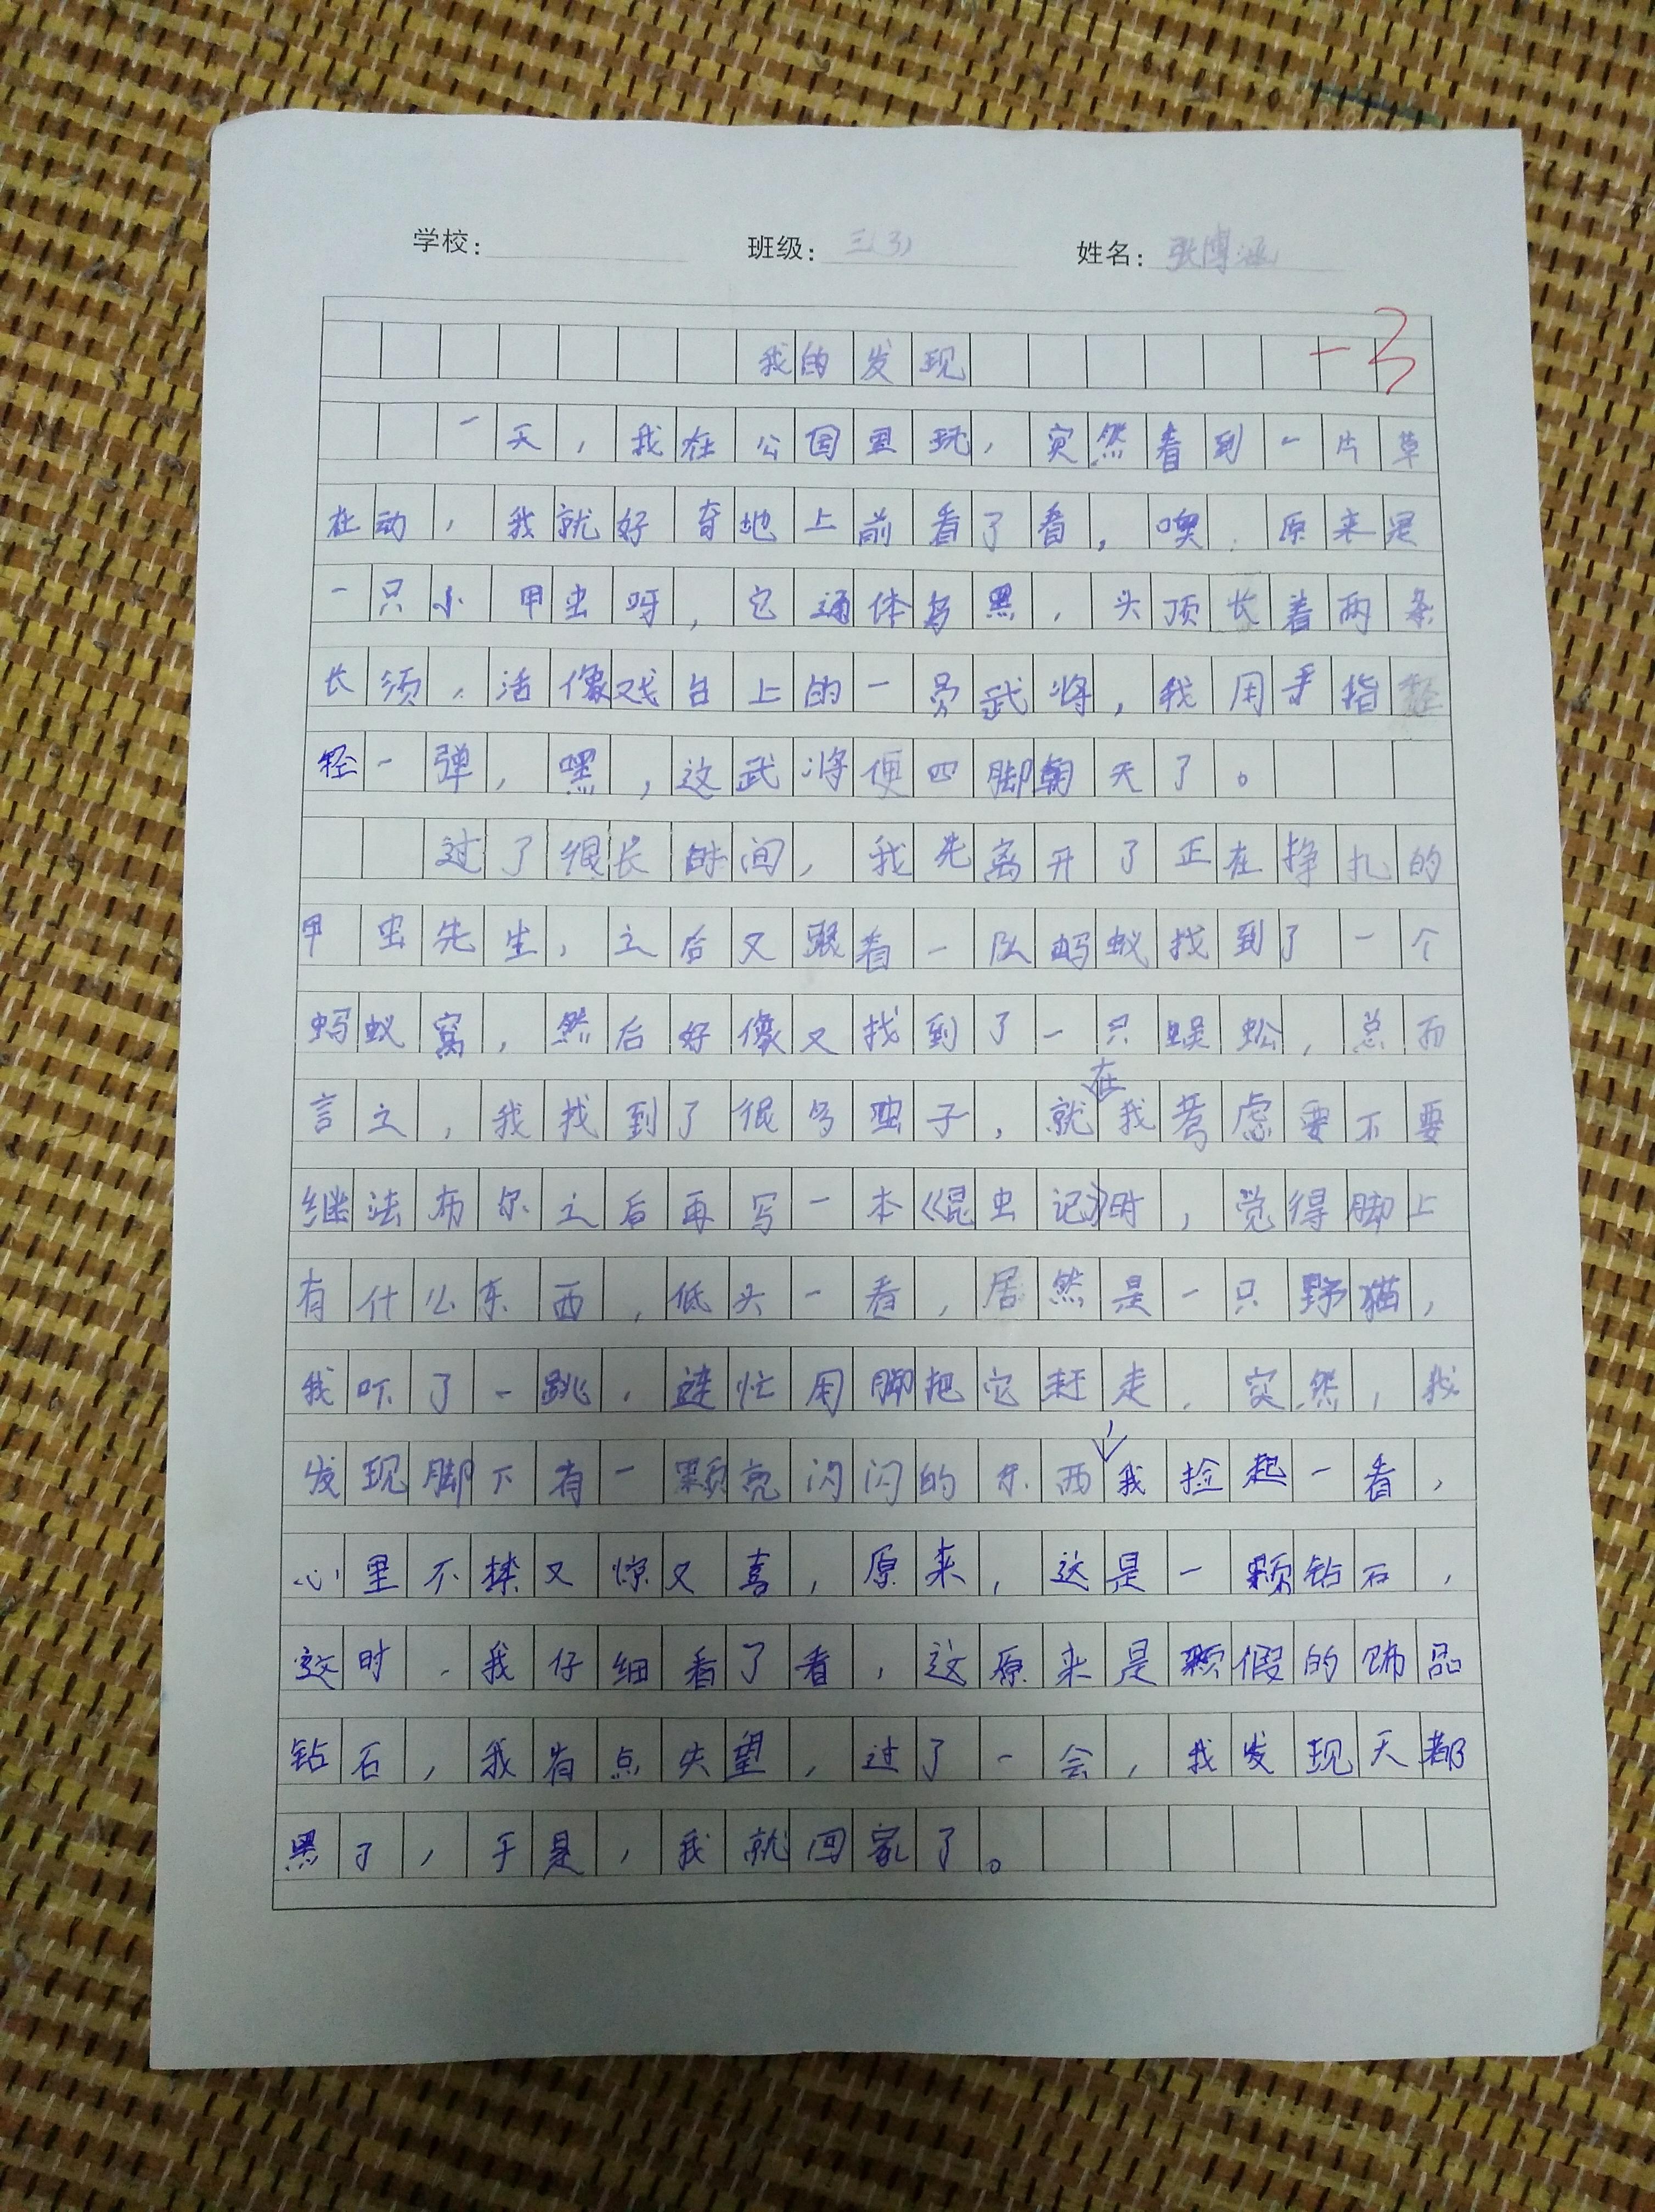 学校： 班级：三(3) 姓名：张博涵
我的发现 -3
一天，我在公园里玩，突然看到一片草
在动，我就好奇地上前看了看，噢，原来是
一只小甲虫呀，它通体乌黑，头顶长着两条
长须，活像戏台上的一员武将，我用手指轻
轻一弹，嘿，这武将便四脚朝天了。
过了很长时间，我先离开了正在挣扎的
甲虫先生，之后又跟着一队蚂蚁找到了一个
蚂蚁窝，然后好像又找到了一只蜈蚣，总而
言之，我找到了很多虫子，就在我考虑要不要
继法布尔之后再写一本《昆虫记》时，觉得脚上
有什么东西，低头一看，居然是一只野猫，
我吓了一跳，连忙用脚把它赶走，突然，我
发现脚下有一颗亮闪闪的东西，我捡起一看，
心里不禁又惊又喜，原来，这是一颗钻石，
这时，我仔细看了看，这原来是颗假的饰品
钻石，我有点失望，过了一会，我发现天都
黑了，于是，我就回家了。